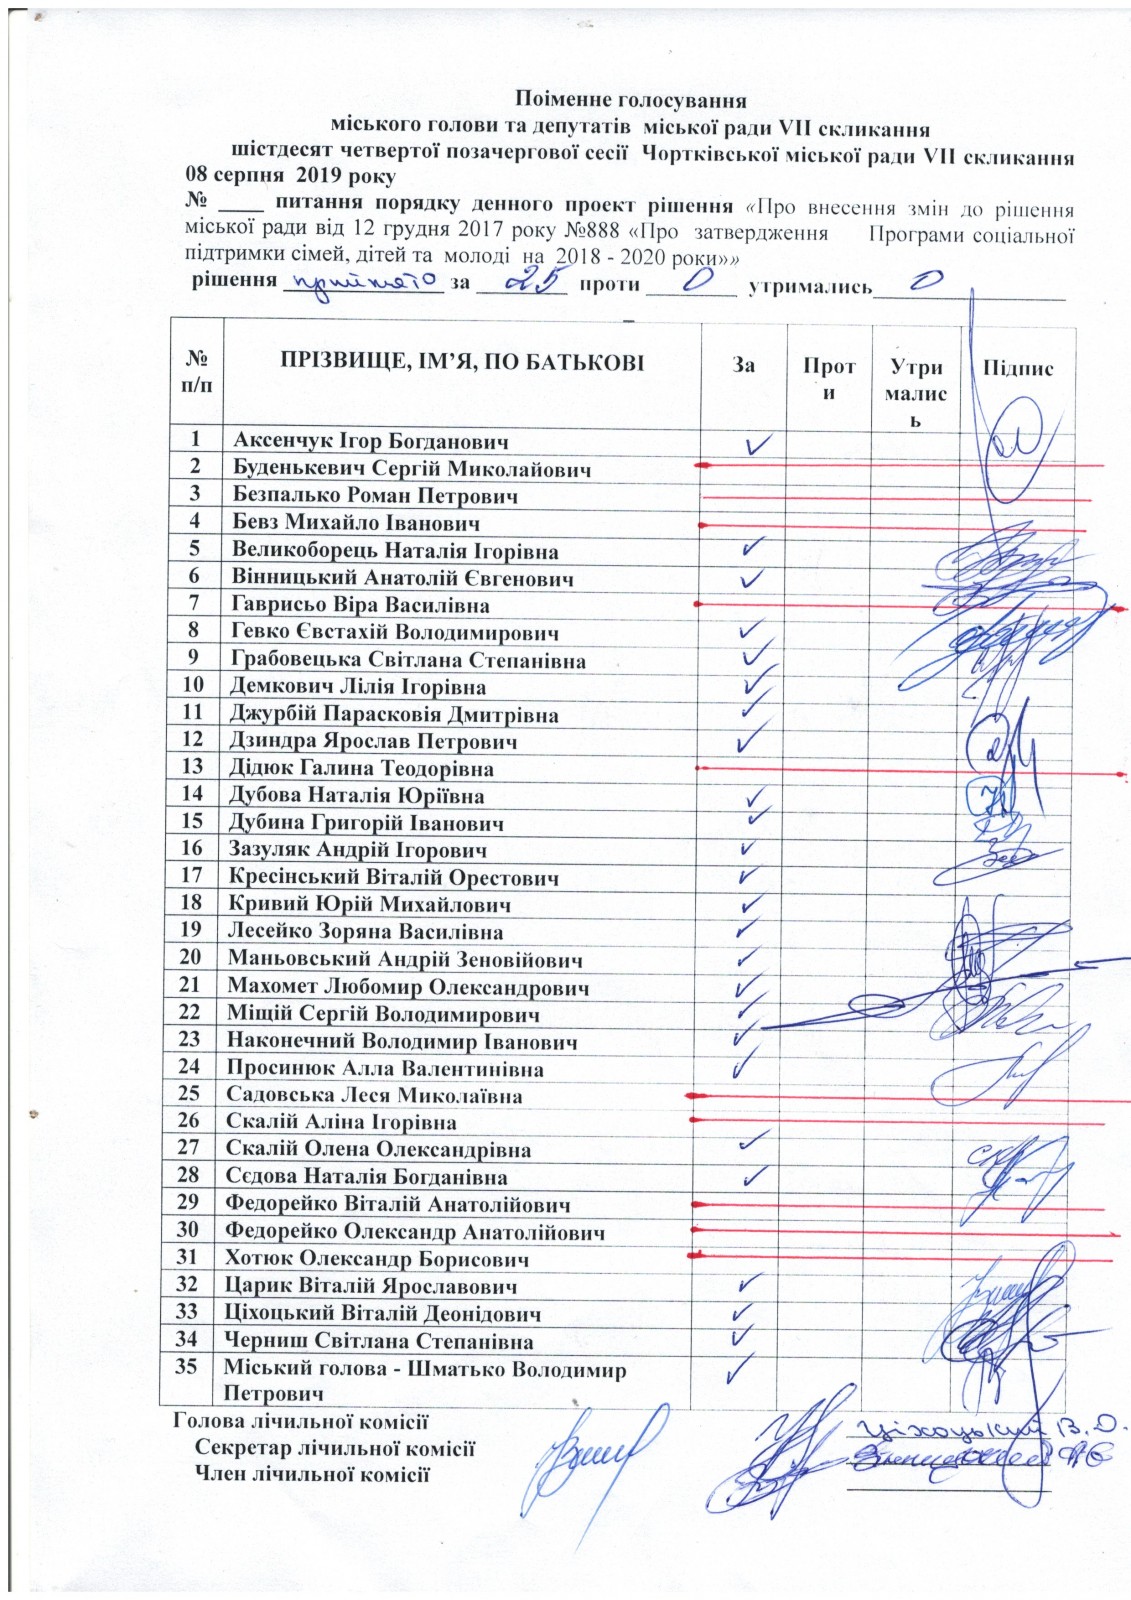 Поіменне голосування
міського голови та депутатів міської ради VII скликання
шістдесят четвертої позачергової сесії Чортківської міської ради VII скликання
08 серпня 2019 року
№ ____ питання порядку денного проект рішення «Про внесення змін до рішення
міської ради від 12 грудня 2017 року №888 «Про затвердження Програми соціальної
підтримки сімей, дітей та молоді на 2018 - 2020 роки»»
рішення прийнято за 25 проти 0 утримались 0
№ п/п ПРІЗВИЩЕ, ІМ’Я, ПО БАТЬКОВІ За Проти Утримались Підпис
1 Аксенчук Ігор Богданович ✓
2 Буденькевич Сергій Миколайович
3 Безпалько Роман Петрович
4 Бевз Михайло Іванович
5 Великоборець Наталія Ігорівна ✓
6 Вінницький Анатолій Євгенович ✓
7 Гаврисьо Віра Василівна
8 Гевко Євстахій Володимирович ✓
9 Грабовецька Світлана Степанівна ✓
10 Демкович Лілія Ігорівна ✓
11 Джурбій Парасковія Дмитрівна ✓
12 Дзиндра Ярослав Петрович ✓
13 Дідюк Галина Теодорівна
14 Дубова Наталія Юріївна ✓
15 Дубина Григорій Іванович ✓
16 Зазуляк Андрій Ігорович ✓
17 Кресінський Віталій Орестович ✓
18 Кривий Юрій Михайлович ✓
19 Лесейко Зоряна Василівна ✓
20 Маньовський Андрій Зеновійович ✓
21 Махомет Любомир Олександрович ✓
22 Міщій Сергій Володимирович ✓
23 Наконечний Володимир Іванович ✓
24 Просинюк Алла Валентинівна ✓
25 Садовська Леся Миколаївна
26 Скалій Аліна Ігорівна
27 Скалій Олена Олександрівна ✓
28 Сєдова Наталія Богданівна ✓
29 Федорейко Віталій Анатолійович
30 Федорейко Олександр Анатолійович
31 Хотюк Олександр Борисович
32 Царик Віталій Ярославович ✓
33 Ціхоцький Віталій Деонідович ✓
34 Черниш Світлана Степанівна ✓
35 Міський голова - Шматько Володимир
Петрович ✓
Голова лічильної комісії Ціхоцький В.О.
Секретар лічильної комісії
Член лічильної комісії